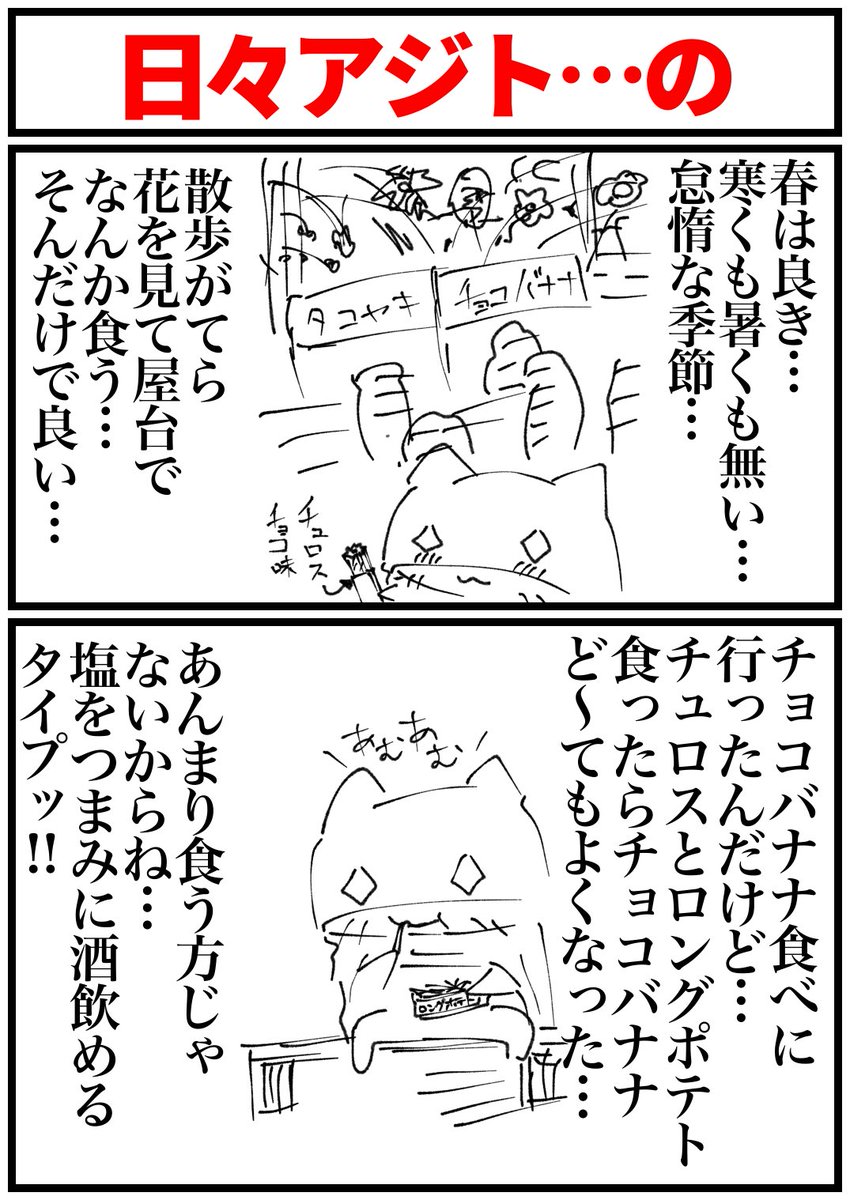 日々アジト…の
春は良き…
寒くも暑くも無い…
怠惰な季節…
チョコバナナ
タコヤキ
散歩がてら
花を見て屋台で
なんか食う…
そんだけで良い…
チュロス
チョコ味
チョコバナナ食べに
行ったんだけど…
チュロスとロングポテト
食ったらチョコバナナ
ど〜でもよくなった…
あむあむ
ロングポテト
あんまり食う方じゃ
ないからね…
塩をつまみに酒飲める
タイプッ!!